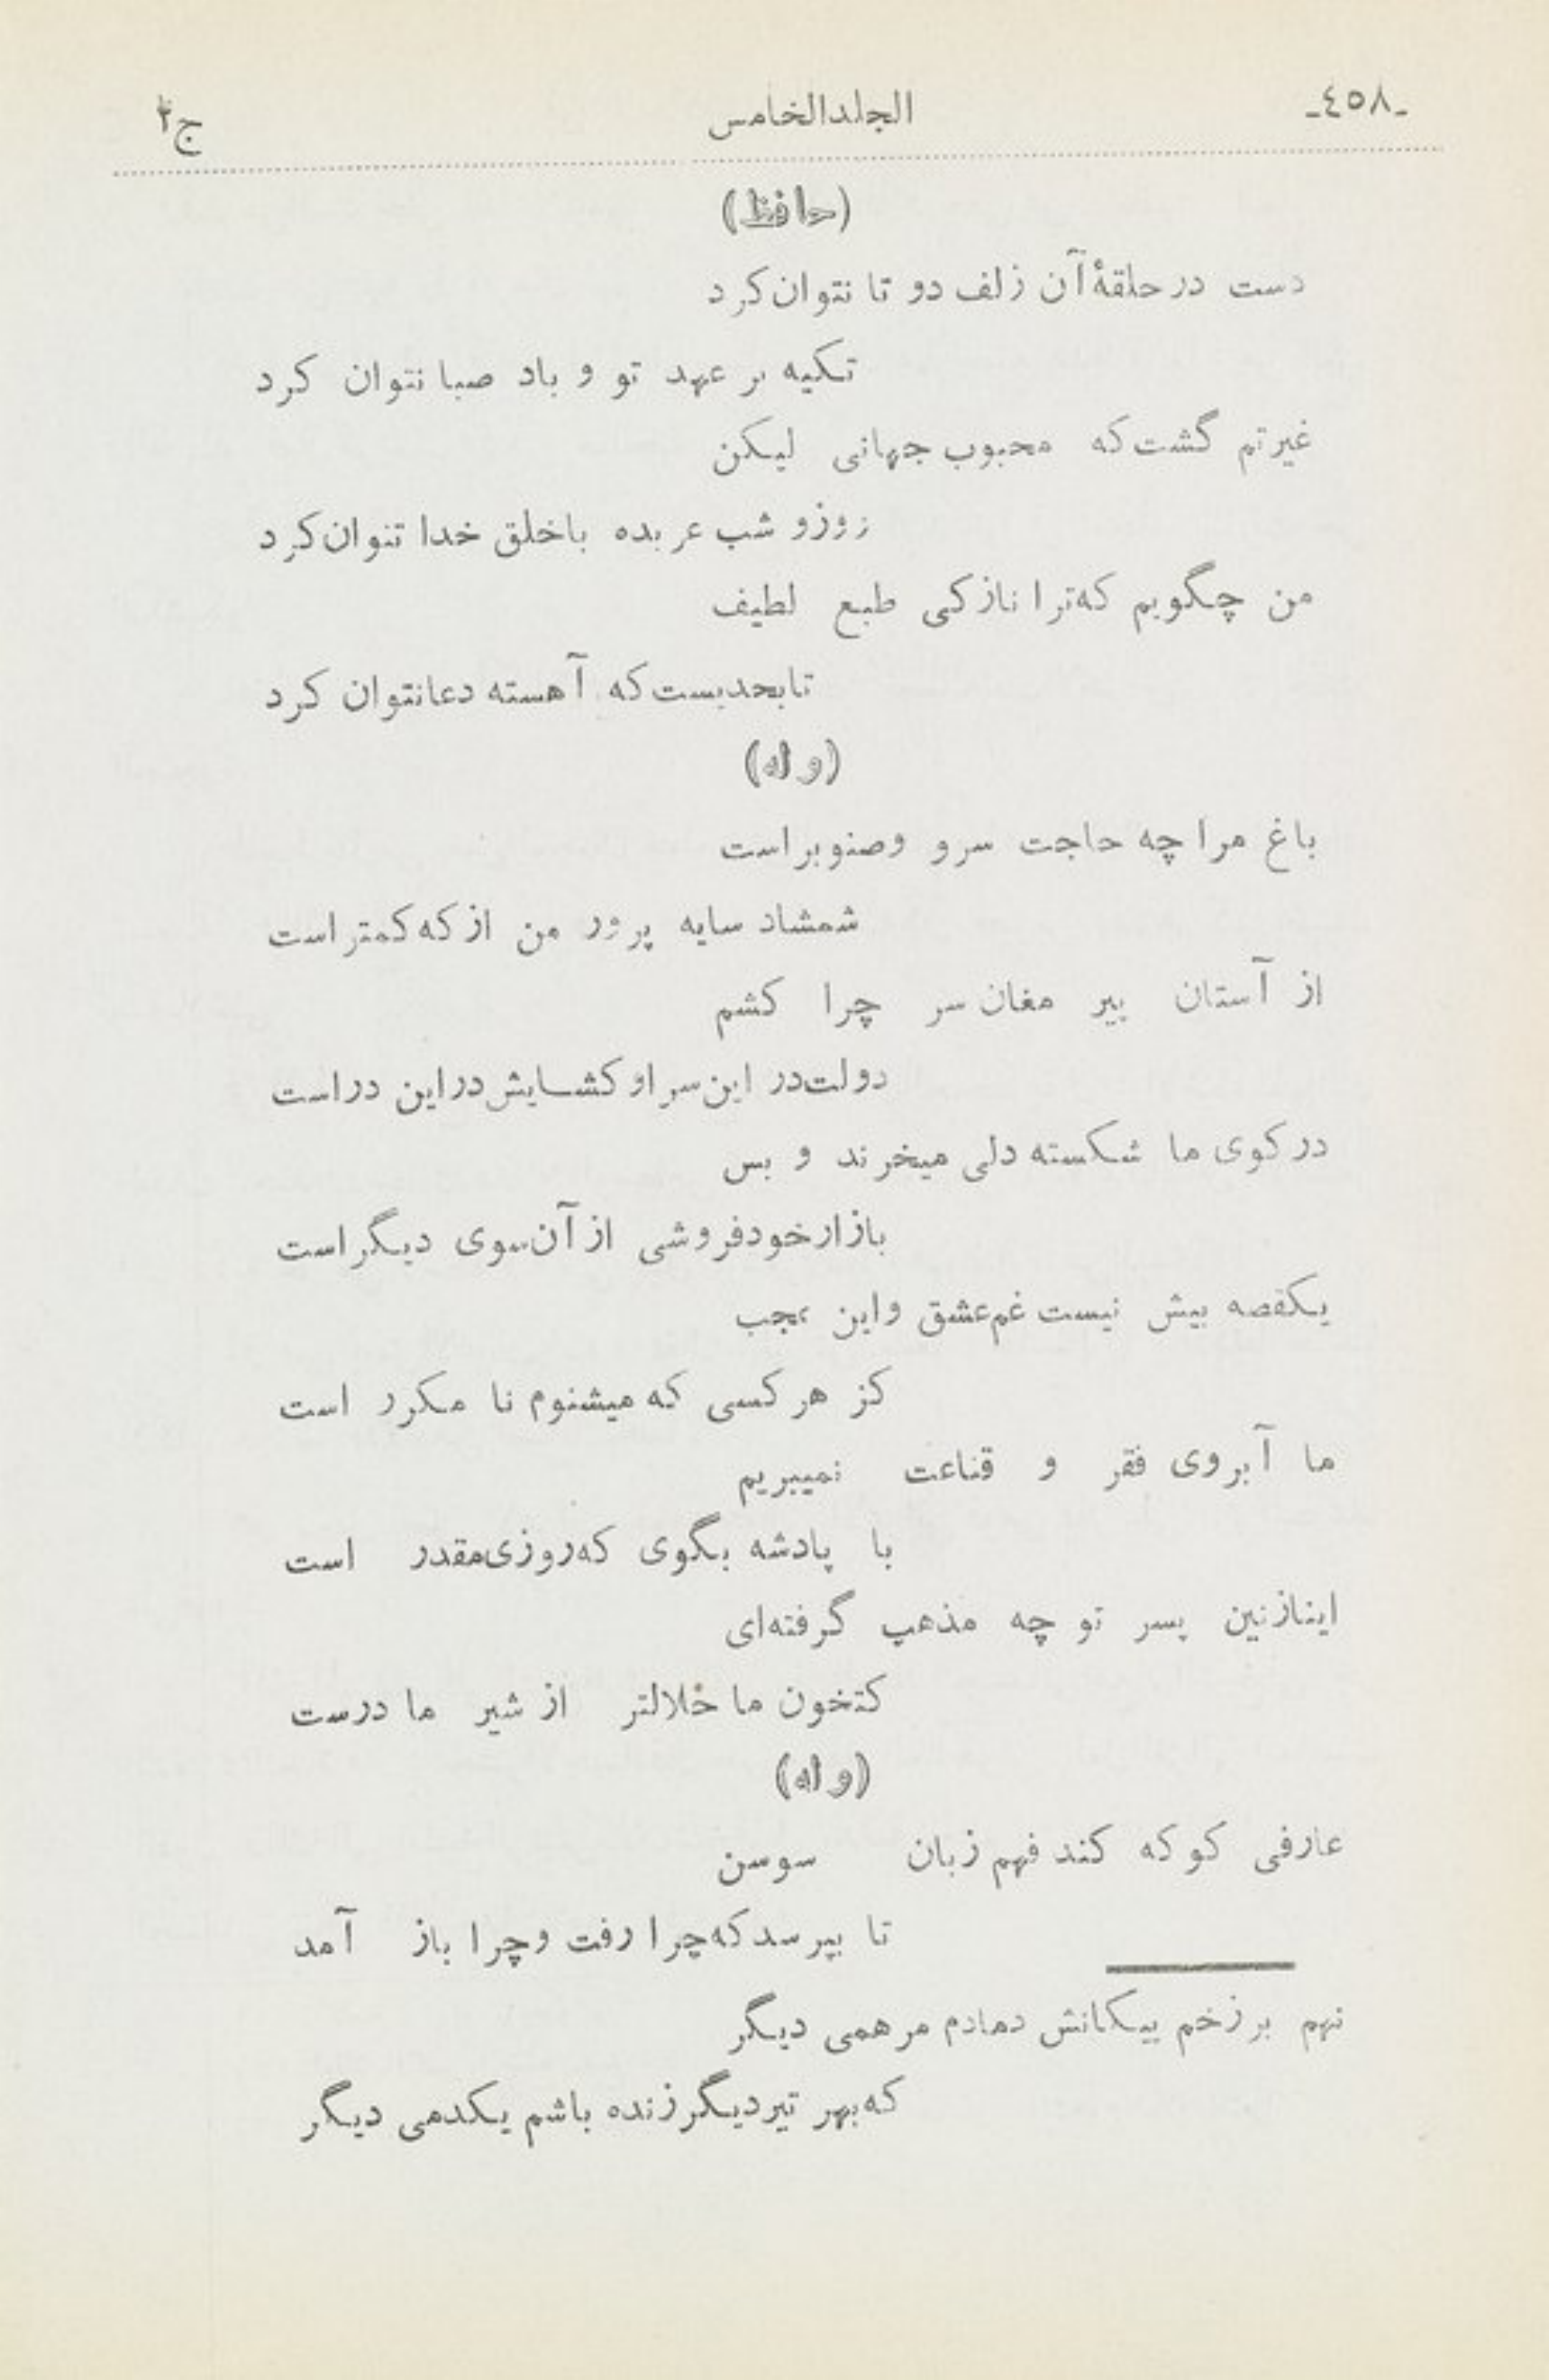 -٤٥٨- الجلدالخامس ج٢
(حافظ)
دست در حلقهٔ آن زلف دو تا نتوان کرد
تکیه بر عهد تو و باد صبا نتوان کرد
غیرتم گشت که محبوب جهانی لیکن
روزو شب عربده باخلق خدا تنوان کرد
من چگویم که ترا نازکی طبع لطیف
تابحدیست که آهسته دعانتوان کرد
(و له)
باغ مرا چه حاجت سرو وصنوبر است
شمشاد سایه پرور من از که کمتر است
از آستان پیر مغان سر چرا کشم
دولت در این سر او کشایش در این در است
در کوی ما شکسته دلی میخرند و بس
بازار خودفروشی از آن سوی دیگر است
یکقصه بیش نیست غم عشق واین عجب
کز هر کسی که میشنوم نا مکرر است
ما آبروی فقر و قناعت نمیبریم
با پادشه بگوی که روزی مقدر است
اینازنین پسر تو چه مذهب گرفته‌ای
کتخون ما خلالتر از شیر ما درست
(و له)
عارفی کو که کند فهم زبان سوسن
تا بپرسد که چرا رفت وچرا باز آمد
نهم بر زخم پیکانش دمادم مرهمی دیگر
که بهر تیر دیگر زنده باشم یکدمی دیگر